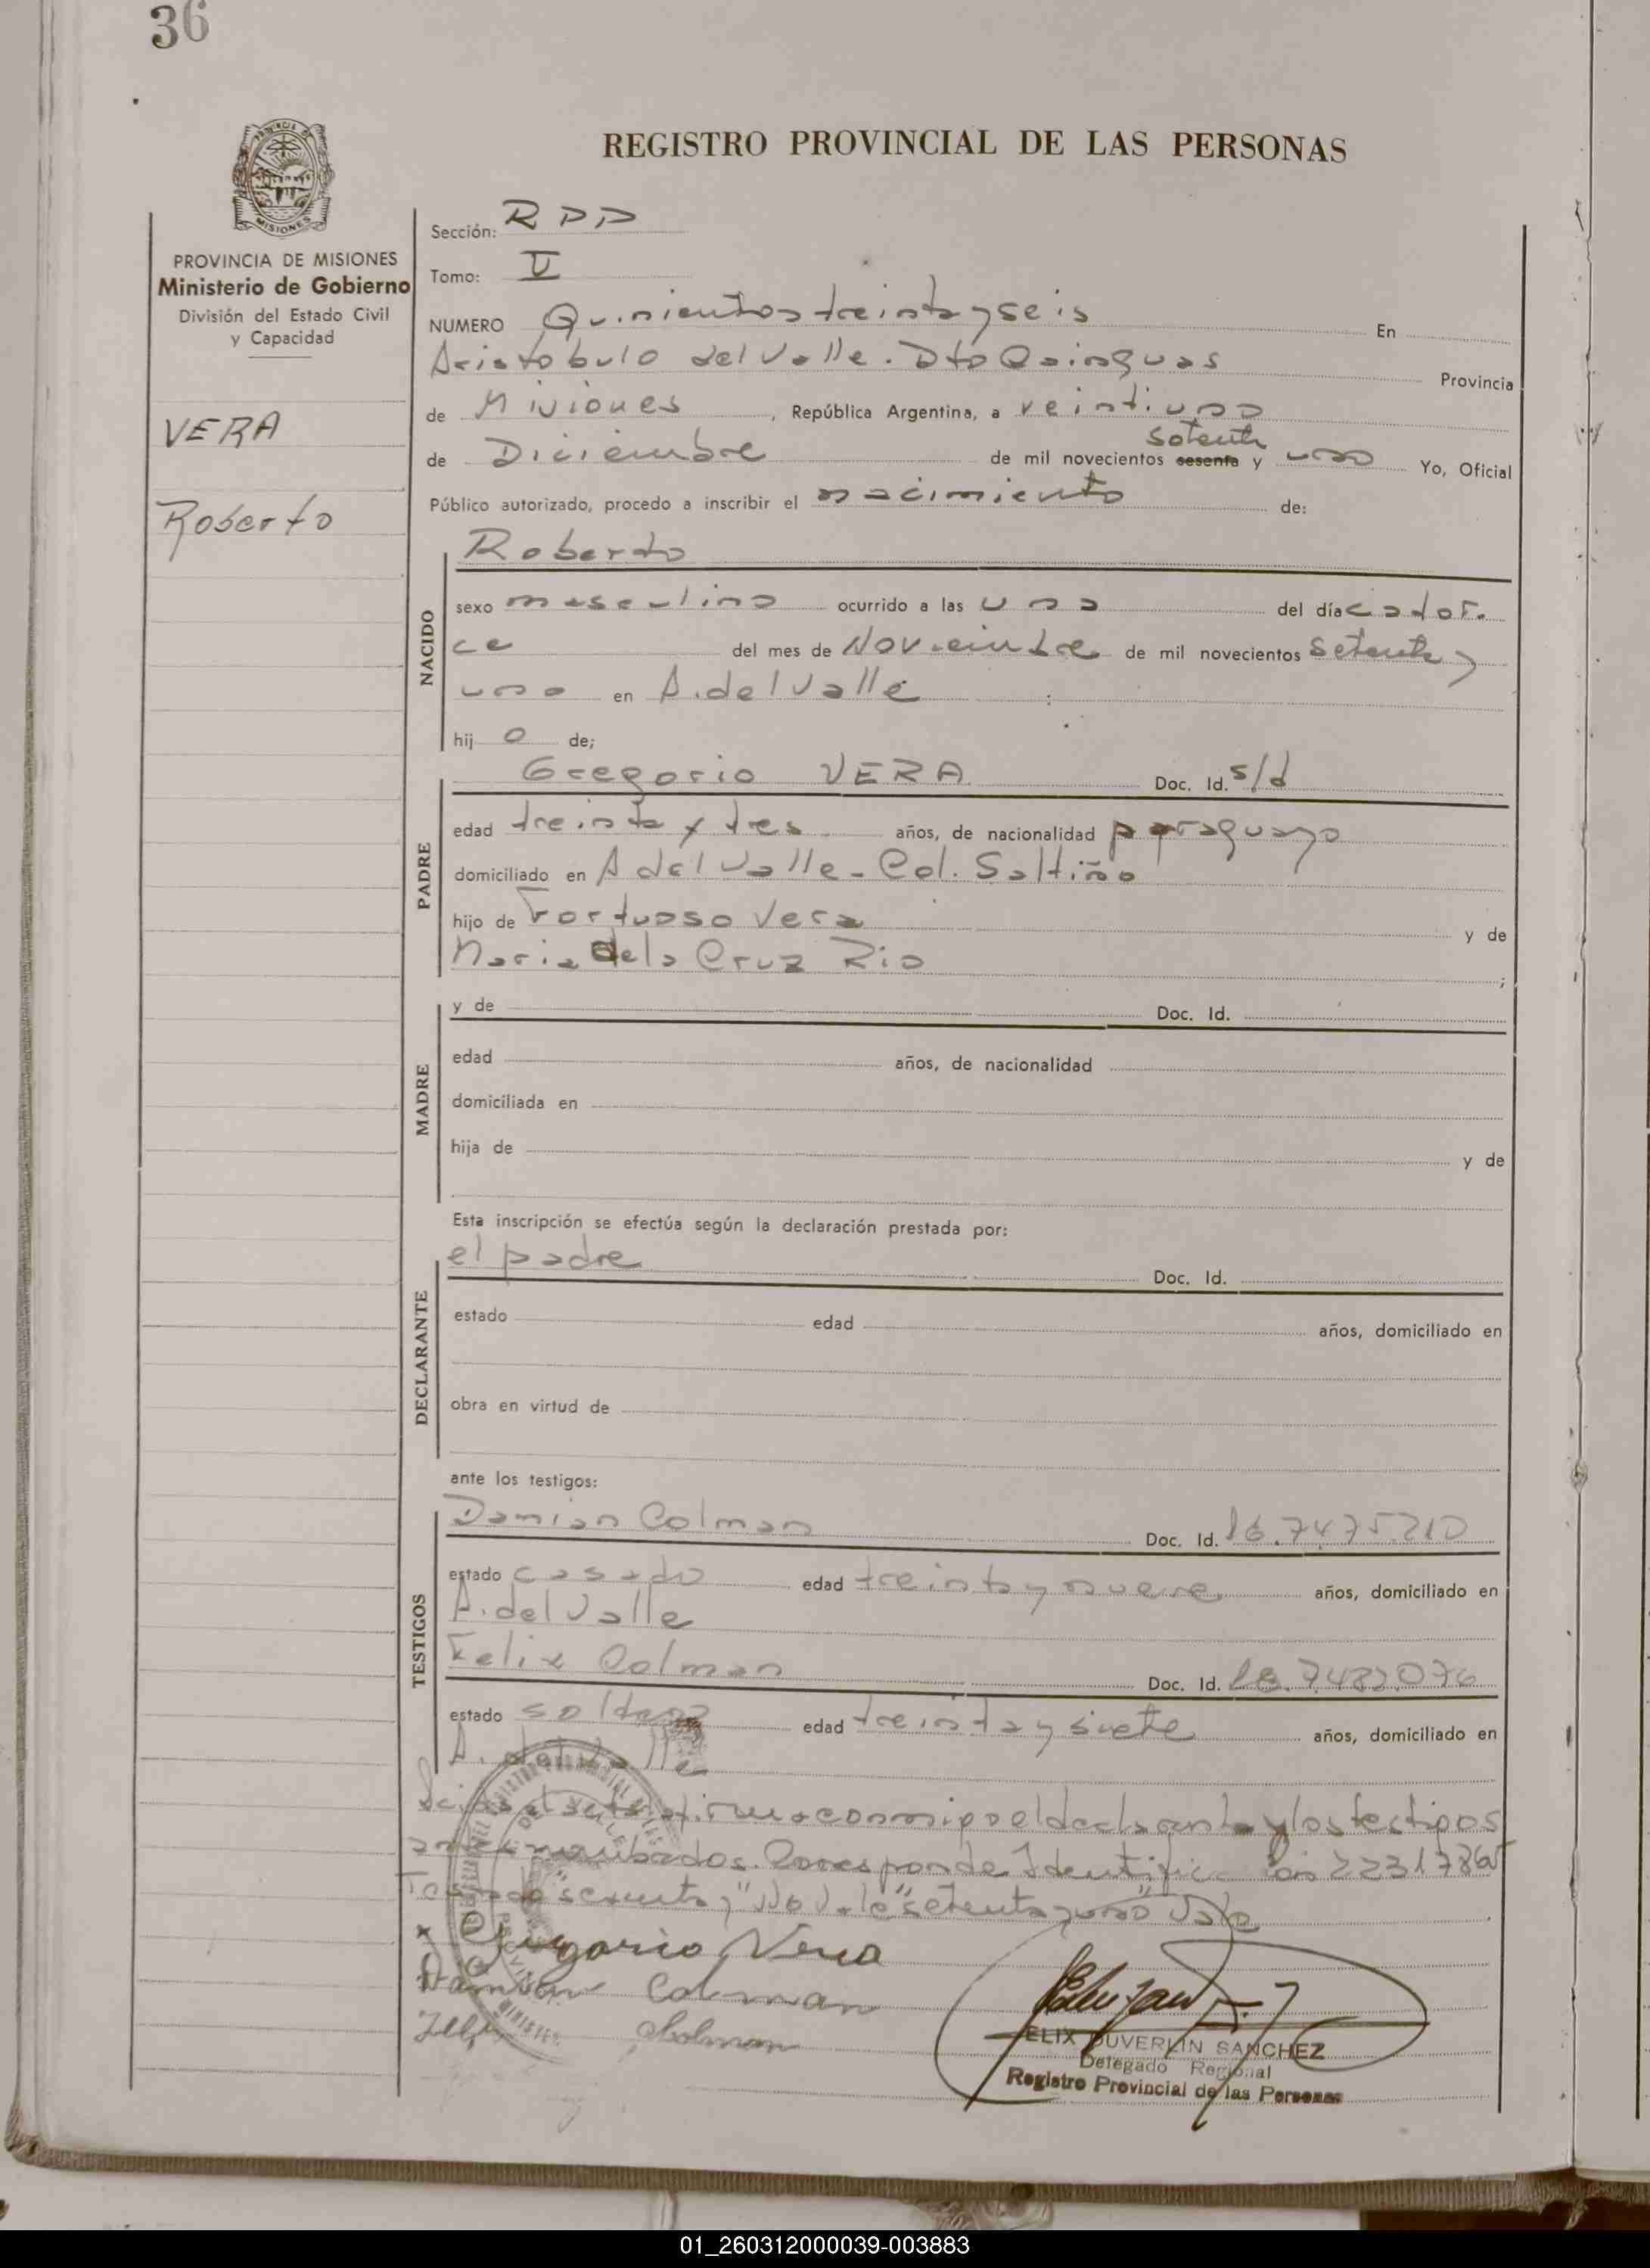 36
REGISTRO PROVINCIAL DE LAS PERSONAS
MISIONES
PROVINCIA DE MISIONES
Ministerio de Gobierno
División del Estado Civil
y Capacidad
VERA
Roberto
Sección: RPP
Tomo: V
NUMERO Quinientos treinta y seis En
Aristobulo del Valle. Dto Cainguas Provincia
de Misiones, República Argentina, a veintiuno
setenta
de Diciembre de mil novecientos sesenta y uno Yo, Oficial
Público autorizado, procedo a inscribir el nacimiento de:
NACIDO
Roberto
sexo masculino ocurrido a las una del día cator.
ce del mes de Noviembre de mil novecientos setenta y
uno en A. del Valle
hij o de;
PADRE
Gregorio VERA Doc. Id. s/d
edad treinta y tres años, de nacionalidad paraguayo
domiciliado en A del Valle - Col. Saltiño
hijo de Fortuoso Vera y de
Maria dela Cruz Rio ;
MADRE
y de Doc. Id.
edad años, de nacionalidad
domiciliada en
hija de y de
Esta inscripción se efectúa según la declaración prestada por:
DECLARANTE
el padre Doc. Id.
estado edad años, domiciliado en
obra en virtud de
ante los testigos:
TESTIGOS
Damian Colman Doc. Id.
estado casado edad treinta y nueve años, domiciliado en
A. del Valle
Felix Colman Doc. Id.
estado soltero edad treinta y siete años, domiciliado en
A. del Valle
Leida el acta firma conmigo el declarante y los testigos
nombrados. Corresponde Identificación
Testado "sesenta y" No Vale "setenta y uno" Vale
Gregorio Vera
Damian Colman
Felix Colman
FELIX DUVERLIN SANCHEZ
Delegado Regional
Registro Provincial de las Personas
01_260312000039-003883